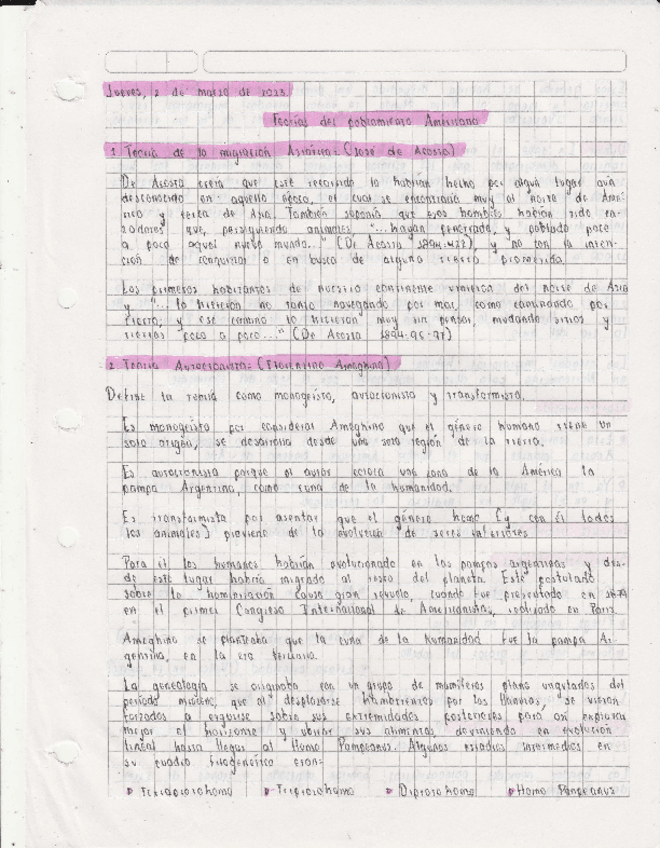 Jueves, 2 de marzo de 2023.
Teorías del poblamiento Americano
1 Teoría de la migración Asiática: (José de Acosta)
De Acosta creía que este recorrido lo habrían hecho por algún lugar aún
desconocido en aquella época, el cual se encontraría muy al norte de Amé-
rica y cerca de Asia. También suponía que esos hombres habían sido ca-
zadores que, persiguiendo animales, "...hayan penetrado, y poblado poco
a poco aquel nuevo mundo..." (De Acosta 1894:422), y no con la inten-
ción de conquistas o en busca de alguna tierra prometida.
Los primeros habitantes de nuestro continente vinieron del norte de Asia
y "...lo hicieron no tanto navegando por mar, como caminando por
tierra; y ese camino lo hicieron muy sin pensar, mudando sitios y
tierras poco a poco..." (De Acosta 1894:96-97)
2 Teoría Autoctonista: (Florentino Ameghino)
Define la teoría como monogeista, autoctonista y transformista.
Es monogeista por considerar Ameghino que el género humano tiene un
solo origen, se desarrolla desde una sola región de la tierra.
Es autoctonista porque el autor coloca una zona de la América la
pampa Argentina, como cuna de la humanidad.
Es transformista por asentar que el género homo (y con él todos
los animales) proviene de la evolución de seres inferiores
Para él los humanos habrían evolucionado en las pampas argentinas y des-
de este lugar habría migrado al resto del planeta. Este postulado
sobre la hominización causó gran revuelo, cuando fue presentado en 1879
en el primer Congreso Internacional de Americanistas, realizado en París.
Ameghino se planteaba que la cuna de la humanidad fue la pampa Ar-
gentina, en la era terciaria.
La genealogía se originaba con un grupo de mamíferos plano ungulados del
período mioceno, que al desplazarse hambrientos por las llanuras, se vieron
forzados a erguirse sobre sus extremidades posteriores para así explorar
mejor el horizonte y ubicar sus alimentos deviniendo en evolución
lineal hasta llegar al Homo Pampeanus. Algunos estadios intermedios en
su cuadro filogenético eran:
▸ Tetraprotohomo ▸ Triprotohomo ▸ Diprotohomo ▸ Homo Pampeanus